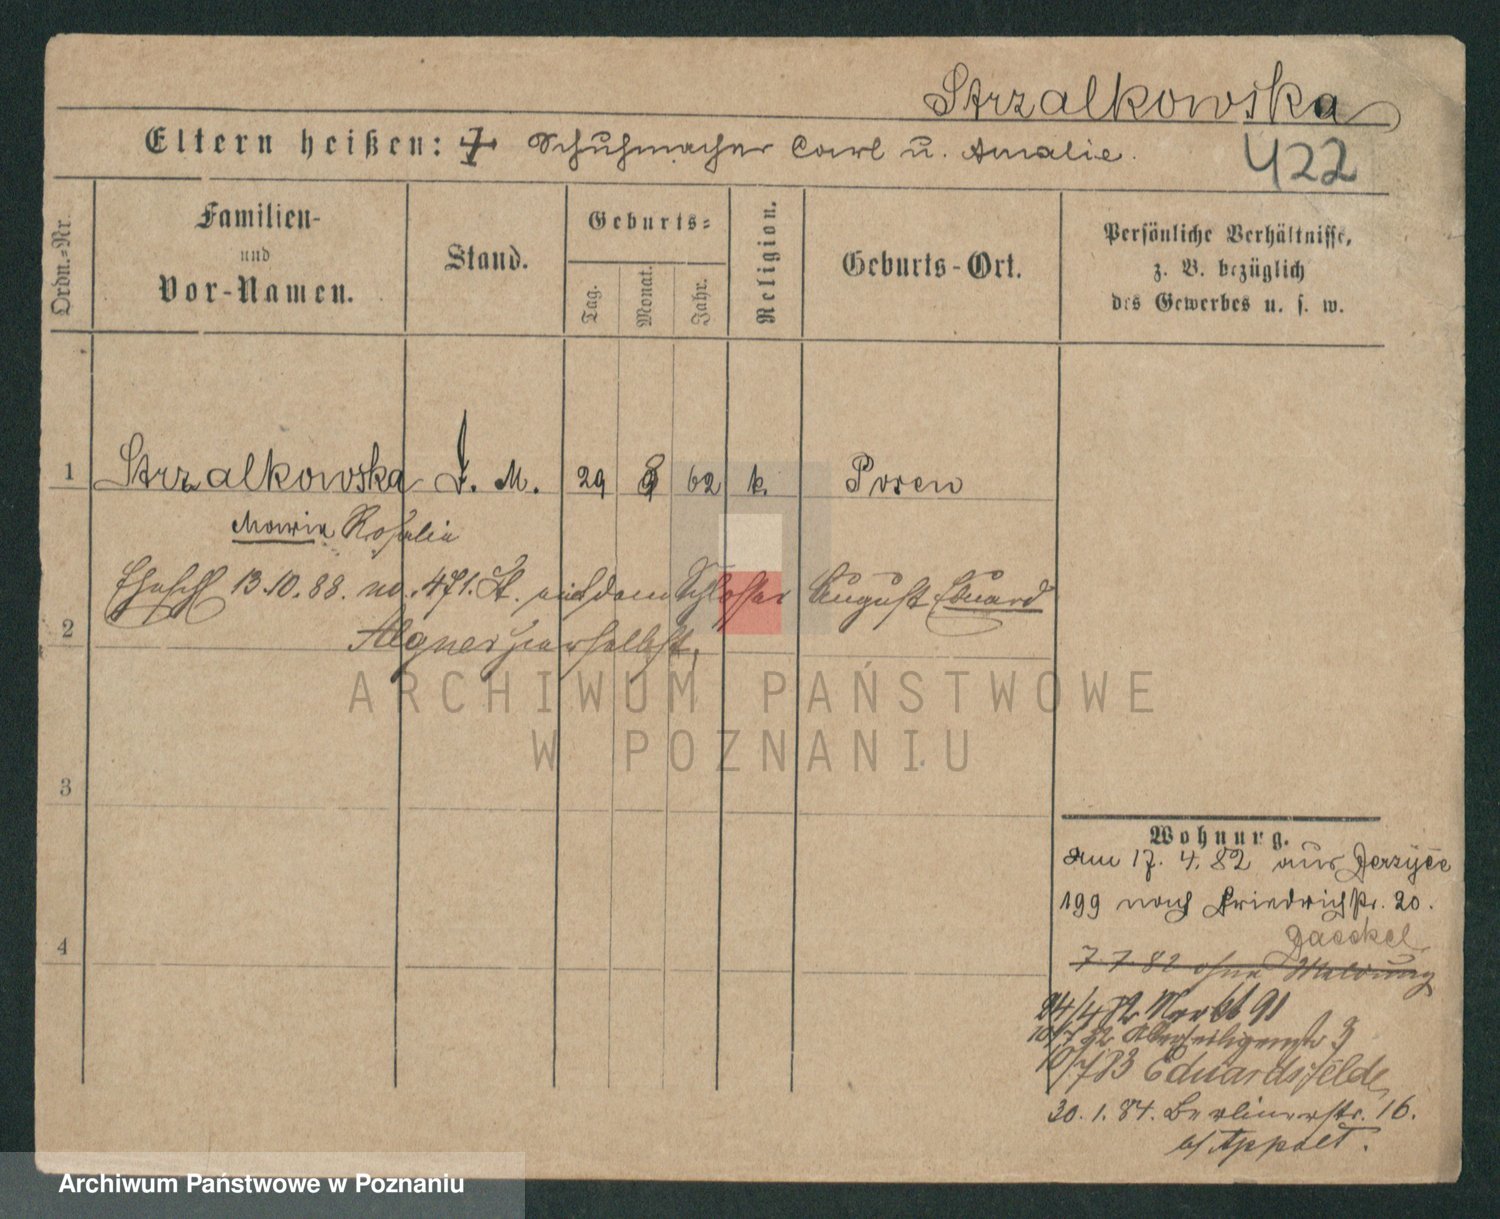 Strzalkowska
Eltern heißen: † Schuhmacher Carl u. Amalie.
422
Ordn.=Nr.
Familien-
und
Vor-Namen.
Stand.
Geburts=
Tag.
Monat.
Jahr.
Religion.
Geburts-Ort.
Persönliche Verhältnisse,
z. B. bezüglich
des Gewerbes u. s. w.
1 Strzalkowska D. M. 29 8 62 k. Posen
Maria Rosalie
Ehschl 13.10.88. no. 471. St. mit dem Schlosser August Eduard
2
hierselbst.
ARCHIWUM PAŃSTWOWE
W POZNANIU
3
4
Wohnung.
Am 17. 4. 82 aus Jerzyce
199 nach Friedrichstr. 20.
Jaeckel
7 7 82 ohne Meldung
24/4 82 Markt 91
10/7 82 Allerheiligenstr 3
10/7 83 Eduardsfelde
30. 1. 84. Berlinerstr. 16.
b/ Appolt.
Archiwum Państwowe w Poznaniu